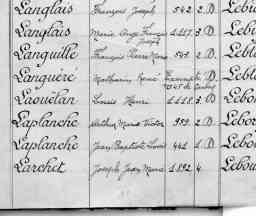 Langlais François Joseph 542 2. D Lebi
Langlais Marie Ange François Joseph 1.257 5. D Lebi
Languille François Pierre Marie 501 2. D Lebl
Languéré Mathurin René D Lebl
Laouëlan Louis Henri 1.118 5. D Lebo
Laplanche Arthur Marie Victor 959 2. D Lebor
Laplanche Jean Baptiste Louis 441 1 D Lebo
Larchet Joseph Jean Marie 1.892 4 Lebou